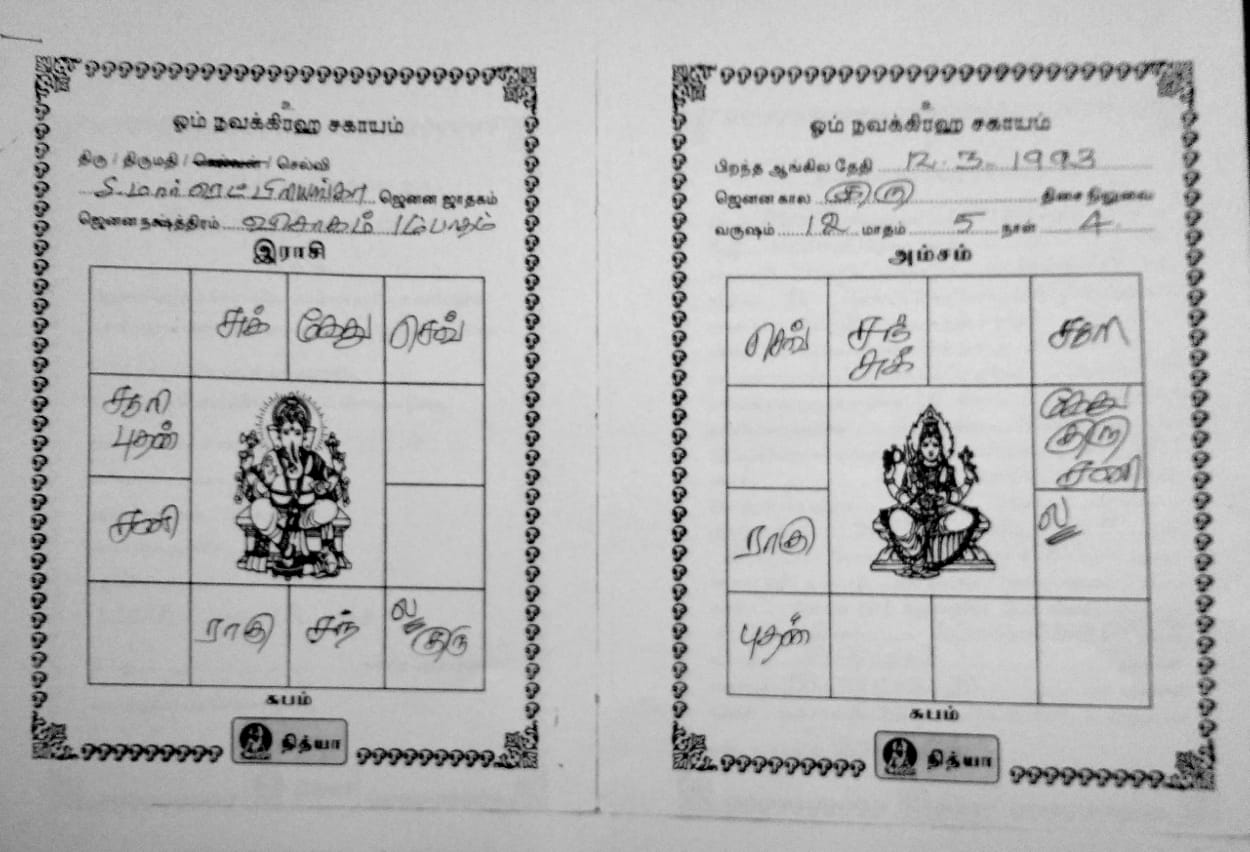 உ
ஓம் நவக்கிரஹ சகாயம்
திரு / திருமதி / செல்வன் / செல்வி
ஜெனன ஜாதகம்
ஜெனன நக்ஷத்திரம் விசாகம் 1ம் பாதம்
இராசி
சுக் கேது செவ்
சூரி
புதன்
சனி
ல
ராகு சந் குரு
சுபம்
நித்யா
உ
ஓம் நவக்கிரஹ சகாயம்
பிறந்த ஆங்கில தேதி 12.3.1993
ஜெனன கால குரு திசை நிலுவை
வருஷம் 12 மாதம் 5 நாள் 4
அம்சம்
செவ் சந் சூரி
சுக்
கேது
குரு
சனி
ராகு ல
புதன்
சுபம்
நித்யா